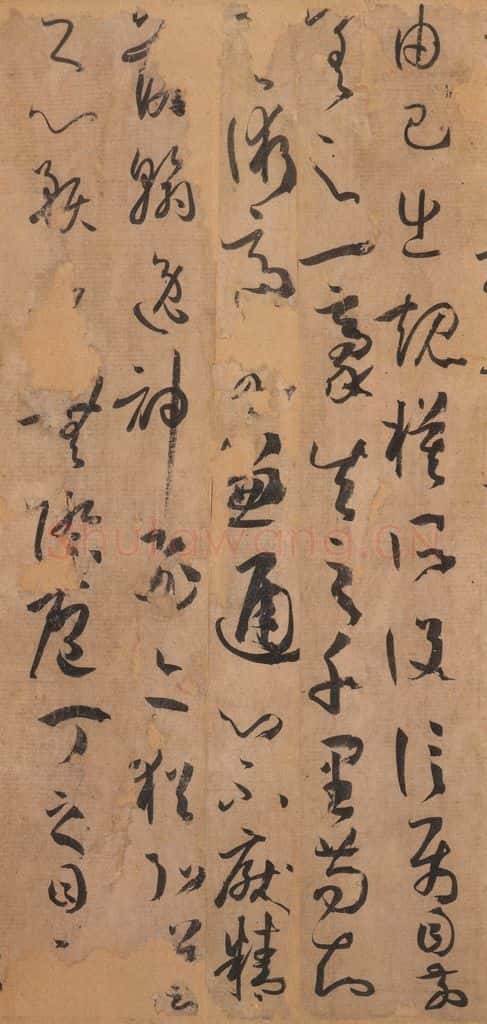 由己出規模所設信屬目前
差之一豪失之千里苟知
術適可兼通心不厭精
落翰逸神飛亦猶弘
之心預無際庖丁之目
Shufawang.CN